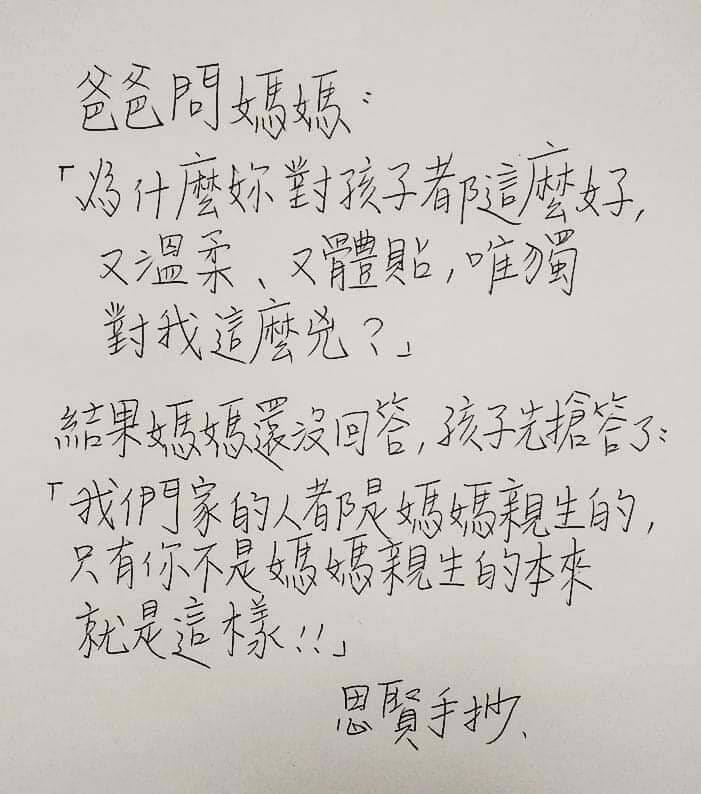 爸爸問媽媽：
「為什麼妳對孩子都這麼好,
又溫柔、又體貼,唯獨
對我這麼兇？」
結果媽媽還沒回答,孩子先搶答了：
「我們家的人都是媽媽親生的,
只有你不是媽媽親生的本來
就是這樣!!」
思賢手抄、